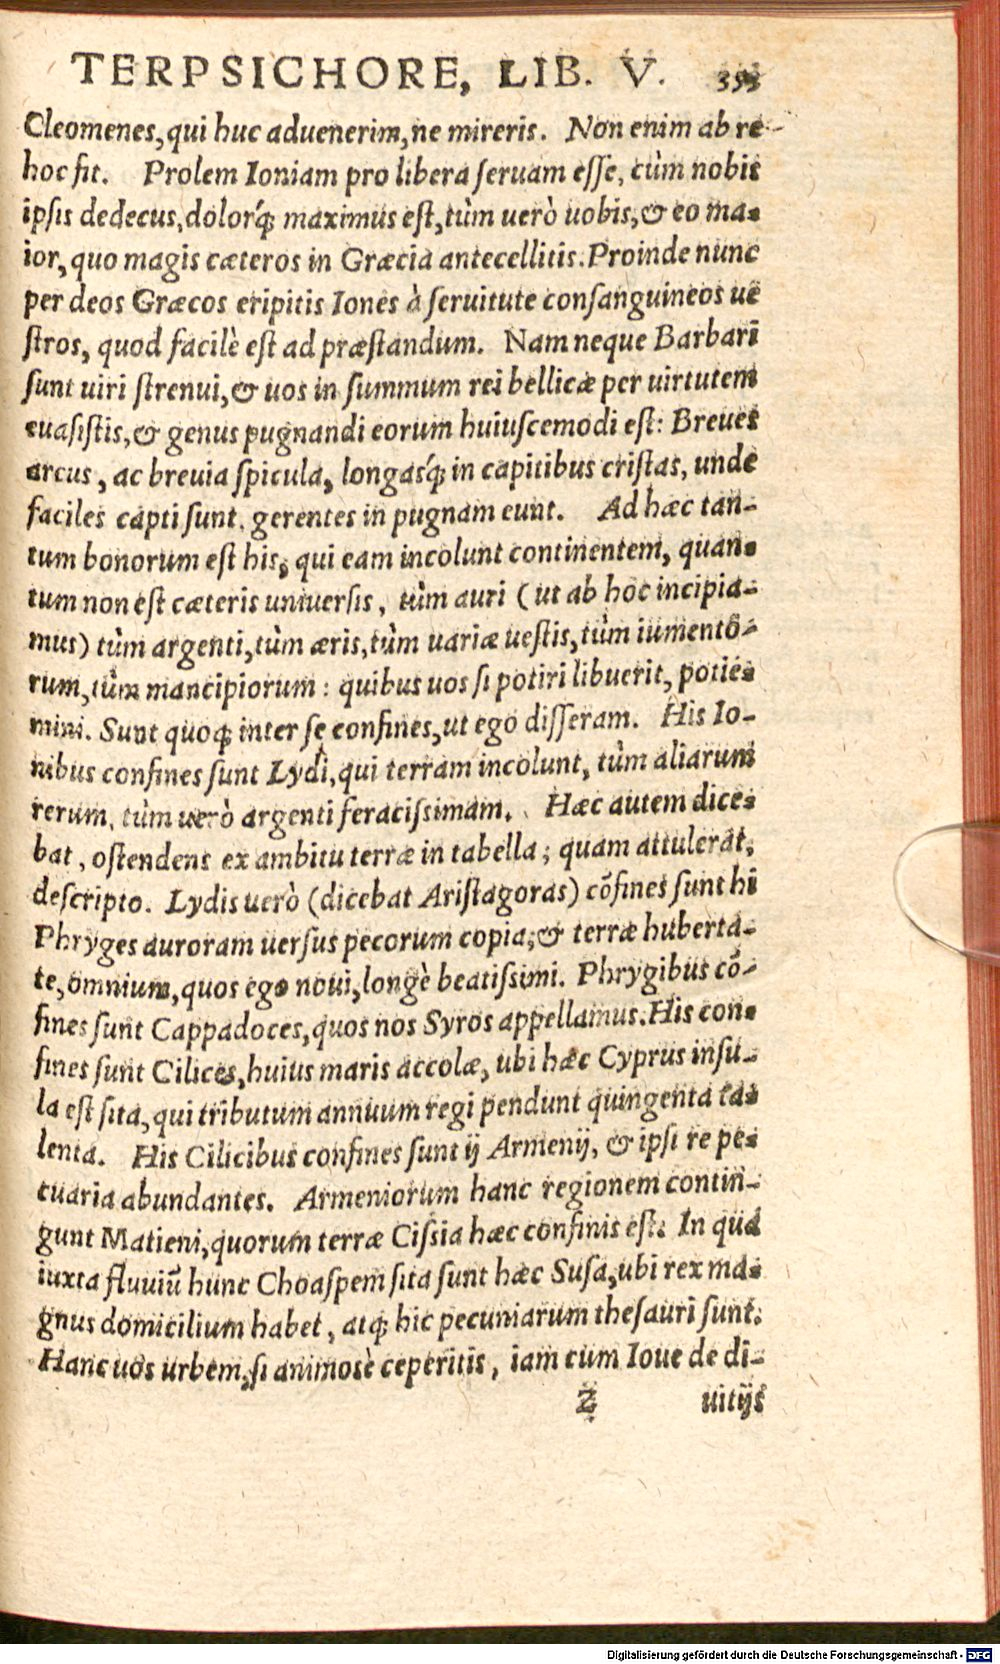 TERPSICHORE, LIB. V. 353
Cleomenes, qui huc aduenerim, ne mireris. Non enim ab re
hoc fit. Prolem Ioniam pro libera seruam esse, cùm nobis
ipsis dedecus, dolorq́; maximus est, tùm uerò uobis, & eo ma-
ior, quo magis cæteros in Græcia antecellitis. Proinde nunc
per deos Græcos eripitis Iones à seruitute consanguineos ue
stros, quod facilè est ad præstandum. Nam neque Barbari
sunt uiri strenui, & uos in summum rei bellicæ per uirtutem
euasistis, & genus pugnandi eorum huiuscemodi est: Breues
arcus, ac breuia spicula, longasq́; in capitibus cristas, unde
faciles capti sunt, gerentes in pugnam eunt. Ad hæc tan-
tum bonorum est his, qui eam incolunt continentem, quan-
tum non est cæteris uniuersis, tùm auri (ut ab hoc incipia-
mus) tùm argenti, tùm æris, tùm uariæ uestis, tùm iumento-
rum, tùm mancipiorum: quibus uos si potiri libuerit, potie-
mini. Sunt quoq; inter se confines, ut ego disseram. His Io-
nibus confines sunt Lydi, qui terram incolunt, tùm aliarum
rerum, tùm uerò argenti feracissimam. Hæc autem dice-
bat, ostendens ex ambitu terræ in tabella; quam attulerat,
descripto. Lydis uerò (dicebat Aristagoras) cōfines sunt hi
Phryges auroram uersus pecorum copia, & terræ huberta-
te, omnium, quos ego noui, longè beatissimi. Phrygibus cō-
fines sunt Cappadoces, quos nos Syros appellamus. His con-
fines sunt Cilices, huius maris accolæ, ubi hæc Cyprus insu-
la est sita, qui tributum annuum regi pendunt quingenta ta-
lenta. His Cilicibus confines sunt ij Armenij, & ipsi re pe-
cuaria abundantes. Armeniorum hanc regionem contin-
gunt Matieni, quorum terræ Cissia hæc confinis est. In qua
iuxta fluuiū hunc Choaspem sita sunt hæc Susa, ubi rex ma-
gnus domicilium habet, atq; hic pecuniarum thesauri sunt.
Hanc uos urbem, si animosè ceperitis, iam cum Ioue de di-
Z uitijs
Digitalisierung gefördert durch die Deutsche Forschungsgemeinschaft - DFG